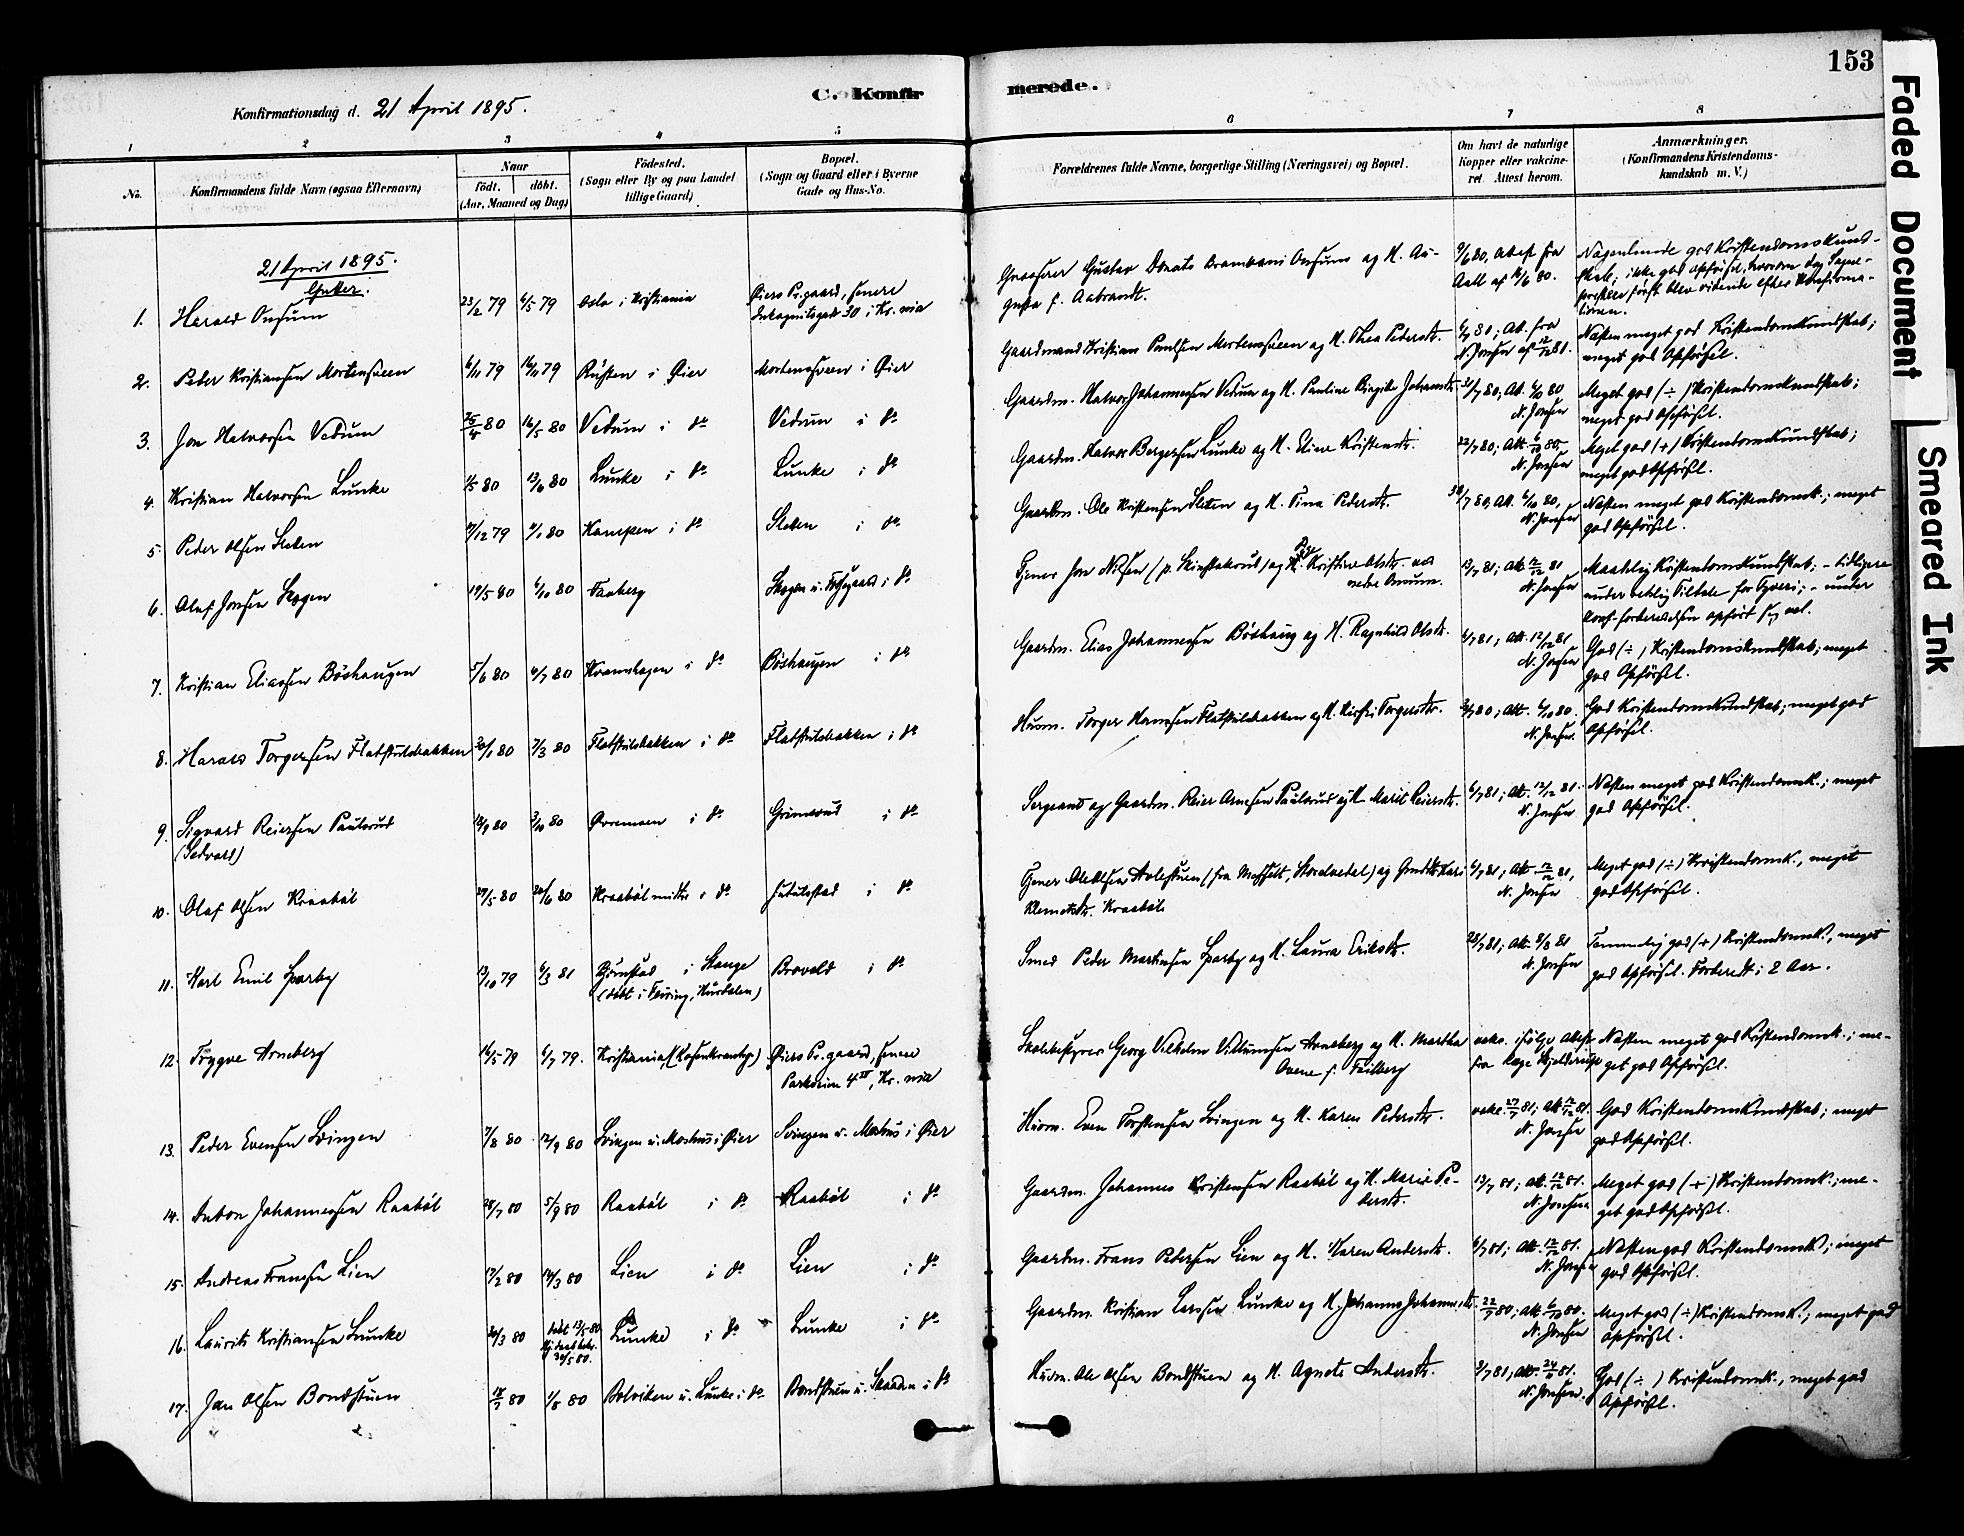 153
C. Konfir
merede.
Konfirmationsdag d. 21 April 1895.
1 2 3 4 5 6 7 8
No.
Konfirmandens fulde Navn (ogsaa Efternavn)
Naar
födt. döbt.
(Aar, Maaned og Dag)
Födested.
(Sogn eller By og paa Landet
tillige Gaard)
Bopæl.
(Sogn og Gaard eller i Byerne
Gade og Hus-No.
Forældrenes fulde Navne, borgerlige Stilling (Næringsvei) og Bopæl.
Om havt de naturlige
Kopper eller vakcine-
ret Attest herom.
Anmærkninger.
(Konfirmandens Kristendoms-
kundskab m. V.)
21 April 1895.
Gutter.
1. Harald Onsum 23/2 79 4/5 79 Oslo i Kristiania Öiers Pr.gaard, senere
Inkognitogade 30 i Kr.nia
Gustav Donats Onsum og H. Au-
gusta f. Aabrandt.
9/6 80, Attest fra
Nogenlunde god Kristendomskund-
skab; ikke god Opførsel, hvorom dog Sogne-
presten först blev vidende efter Konfirma-
tionen.
2. Peder Kristiansen Mortensveen 6/11 79 16/11 79 Rusten i Öier Mortensveen i Öier
Gaardmand Kristian Paulsen Mortensveen og H. Thea Pedersdtr.
N. Jonsen af 12/12 81.
Næsten meget god Kristendomskundskab;
meget god Opførsel.
3. Jon Halvorsen Vedum 25/4 80 16/5 80 Vedum i do Vedum i do
Gaardm. Halvor Johannessen Vedum og H. Pauline Birgitte Johansdtr.
21/7 80; Att. 6/10 80
N. Jonsen
Meget god (÷) Kristendomskundskab;
meget god Opførsel.
4. Kristian Halvorsen Lunke 1/5 80 13/6 80 Lunke i do Lunke i do
Gaardm. Halvor Bergersen Lunke og H. Eline Kristensdtr.
22/7 80; Att. 6/10 80.
N. Jonsen
Meget god (+) Kristendomskundskab;
meget god Opførsel.
5. Peder Olsen Sletten 17/12 79 11/1 80 Kampen i do Sletten i do
Gaardm. Ole Kristensen Sletten og H. Tina Pedersdtr.
30/7 80, Att. 6/10 80,
N. Jonsen
Næsten meget god Kristendomsk.; meget
god Opførsel.
6. Olaf Jonsen Skogen 19/5 80 6/10 80 Faaberg
Tjener Jon Nilsen
13/7 81; Att. 12/12 81
N. Jonsen
Maadelig Kristendomskundskab; - tidligere
under retslig Tiltale for Tyveri; - under
Konf. forberedelsen opført sig vel.
7. Kristian Eliassen Böshaugen 5/6 80 4/7 80 Kramhagen i do Böshaugen i do
Gaardm. Elias Johannessen Böshaug og H. Ragnhild Olsdtr.
6/7 81; Att. 12/12 81
N. Jonsen
God (÷) Kristendomskundskab; meget
god Opførsel.
8. Harald Torgersen Flatstulsbakken 30/1 80 7/3 80 Flatstulsbakken i do Flatstulsbakken i do
Husm. Torger Hansen Flatstulsbakken og H. Kirsti Torgersdtr.
Att. 6/10 80.
N. Jonsen.
God Kristendomskundskab; meget god
Opførsel.
9. Sigvard Reiersen Paulsrud
(Sedvard)
12/9 80 3/10 80 Övremoen i do Grimsrud i do
Sergeant og Gaardm. Reier Arnesen Paulsrud og H. Marit Reiersdtr.
6/7 81; Att. 12/12 81.
N. Jonsen
Næsten meget god Kristendomsk.; meget
god Opførsel.
10. Olaf Olsen Kraaböl 29/5 80 20/6 80 Kraaböl nedre i do
Tjener Ole Olsen
Klemetsdtr. Kraaböl
6/7 81; Att. 12/12 81,
N. Jonsen
Meget god (÷) Kristendomsk., meget
god Opførsel.
11. Karl Emil Sparby 13/10 79 6/3 81 Bjørnstad i Stange
(döbt i Feiring, Hurdalen)
Brovold i do
Smed Peder Martinsen Sparby og H. Laura Eriksdtr.
N. Jonsen
Temmelig god (+) Kristendomsk., meget
god Opførsel. Forberedt i 2 Aar.
12. Trygve Arneberg 16/5 79 6/7 79. Kristiania, Öiers Pr.gaard, senere
Parkveien 4 II, Kr.nia
Skolebestyrer Georg Vilhelm Arneberg og H. Martha
vakc. ifölge Attest
fra Læge Hjelderup
Næsten meget god Kristendomsk.; me-
get god Opførsel.
13. Peder Evensen Svingen 7/8 80 12/9 80 Svingen u. Moshus i Öier Svingen u. Moshus i Öier
Husm. Even Torstensen Svingen og H. Karen Pedersdtr.
vakc. 27/7 81; Att. 12/12 81.
N. Jonsen
God Kristendomskundskab; meget
god Opførsel.
14. Anton Johannessen Raaböl 28/7 80 5/9 80 Raaböl i do Raaböl i do
Gaardm. Johannes Kristensen Raaböl og H. Marie Pe-
dersdtr.
13/7 81; Att. 12/12 81.
N. Jonsen
Meget god (+) Kristendomsk.; me-
get god Opførsel.
15. Andreas Fransen Lien 17/2 80 14/3 80 Lien i do Lien i do
Gaardm. Frans Pedersen Lien og H. Karen Andersdtr.
6/7 81; Att. 12/12 81.
N. Jonsen
Næsten god Kristendomsk; meget
god Opførsel.
16. Laurits Kristiansen Lunke 20/3 80
Lunke i do Lunke i do
Gaardm. Kristian Larssen Lunke og H. Johanne Johannesdtr.
22/7 80; Att. 6/10 80.
N. Jonsen
Meget god (÷) Kristendomsk.; meget god
Opførsel.
17. Jan Olsen Bondstuen 18/7 80 1/8 80 Bolviken u. Lunke i do Bondstuen u. Skaaden i do
Husm. Ole Olsen Bondstuen og H. Agnete Andersdtr.
N. Jonsen.
God (÷) Kristendomsk., meget god
Opførsel.
Faded Document
Smeared Ink